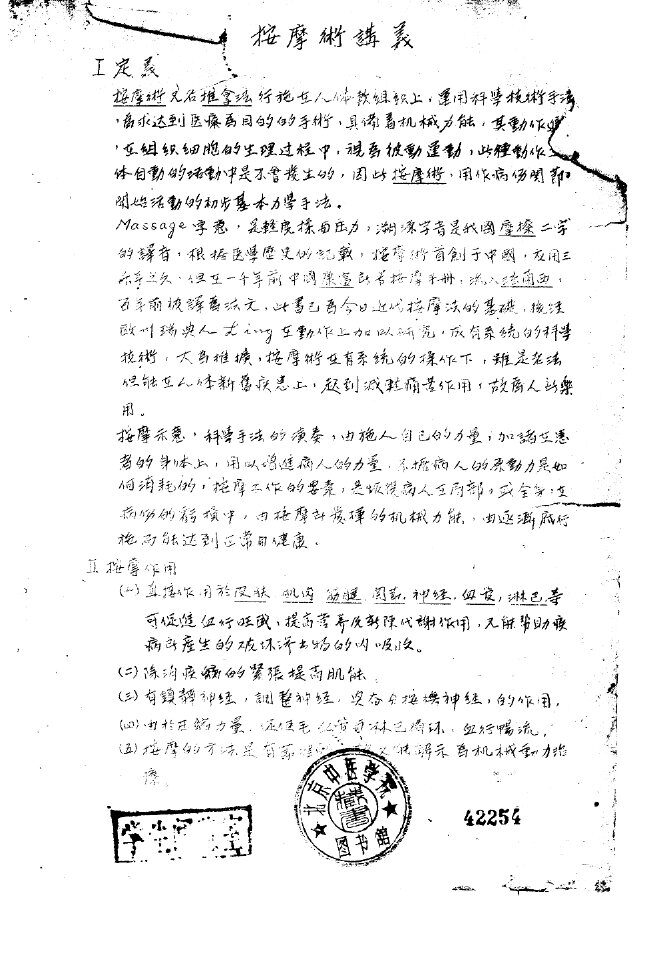 按摩術講義
I 定義
按摩術又名推拿法行施在人体軟組織上，運用科學技術手法
，為求达到医療為目的的手術，具備着机械力能，其動作
，在組织細胞的生理过程中，視為被動運動，此種動作
体自動的活動中是不會發生的，因此按摩術，用作病傷関節
開始活動的初步基本力學手法。
Massage 字意，是輕度揉而压力，溯源字音是我國摩擦二字
的譯音，根据医學歷史的記載，按摩術首創于中國，应用三
千年之久，但在一千年前中國 已著按摩手册，流入法蘭西，
百年前被譯為法文，此書已為今日近代按摩法的基礎，後経
欧州瑞典人 ling 在動作上加以研究，成有系统的科學
技術，大為推廣，按摩術在有系统的操作下，雖是老法
但能在人体新舊疾患上，起到減輕痛苦作用，故為人所樂
用。
按摩示意，科學手法的演奏，由施人自己的力量，加諸在患
者的身体上，用以增進病人的力量，不拘病人的原動力是如
何消耗的，按摩工作的要素，是恢復病人在局部，或全身，在
病傷的 程中，由按摩所發揮的机械力能，由逐漸 行
施而能达到正常的健康。
II 按摩作用
(一) 直接作用於皮肤 肌肉 筋腱 関節，神経，血管，淋巴等
可促進血行旺盛，提高营养及新陳代謝作用，又能幫助疾
病所產生的破坏滲出物的吸收。
(二) 除消疲勞的緊張提高肌能
(三) 有鎮靜神経，調整神経， 神経，的作用。
(四) 由於压縮力量，促使毛 淋巴循环，血行暢流，
(五) 按摩的方法是有 示為机械動力治
療
北京中医学院
藏書
图书館
42254